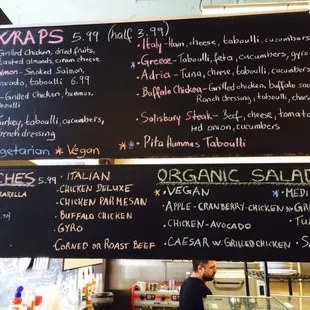 WRAPS 5.99 (half 3.99)
Grilled Chicken, dried fruits,
toasted almonds, cream cheese
Smoked Salmon,
Avocado, taboulli 6.99
Grilled Chicken, hummus,
taboulli
Turkey, taboulli, cucumbers,
French dressing
Vegetarian * Vegan
Italy - Ham, cheese, taboulli, cucumbers
* Greece - Taboulli, feta, cucumbers, gyro
Adria - Tuna, cheese, taboulli, cucumbers
Buffalo Chicken - Grilled chicken, buffalo sau
Ranch dressing, taboulli, chees
Salisbury Steak - Beef, cheese, tomato
red onion, cucumbers
* Pita Hummus Taboulli
CHES 5.99
ARELLA
• ITALIAN
• CHICKEN DELUXE
• CHICKEN PARMESAN
• BUFFALO CHICKEN
• GYRO
• CORNED OR ROAST BEEF
ORGANIC SALAD
* • VEGAN
• APPLE-CRANBERRY-CHICKEN
• CHICKEN-AVOCADO
• CAESAR W. GRILLED CHICKEN
* • MEDI
* • GR
• TU
• SA